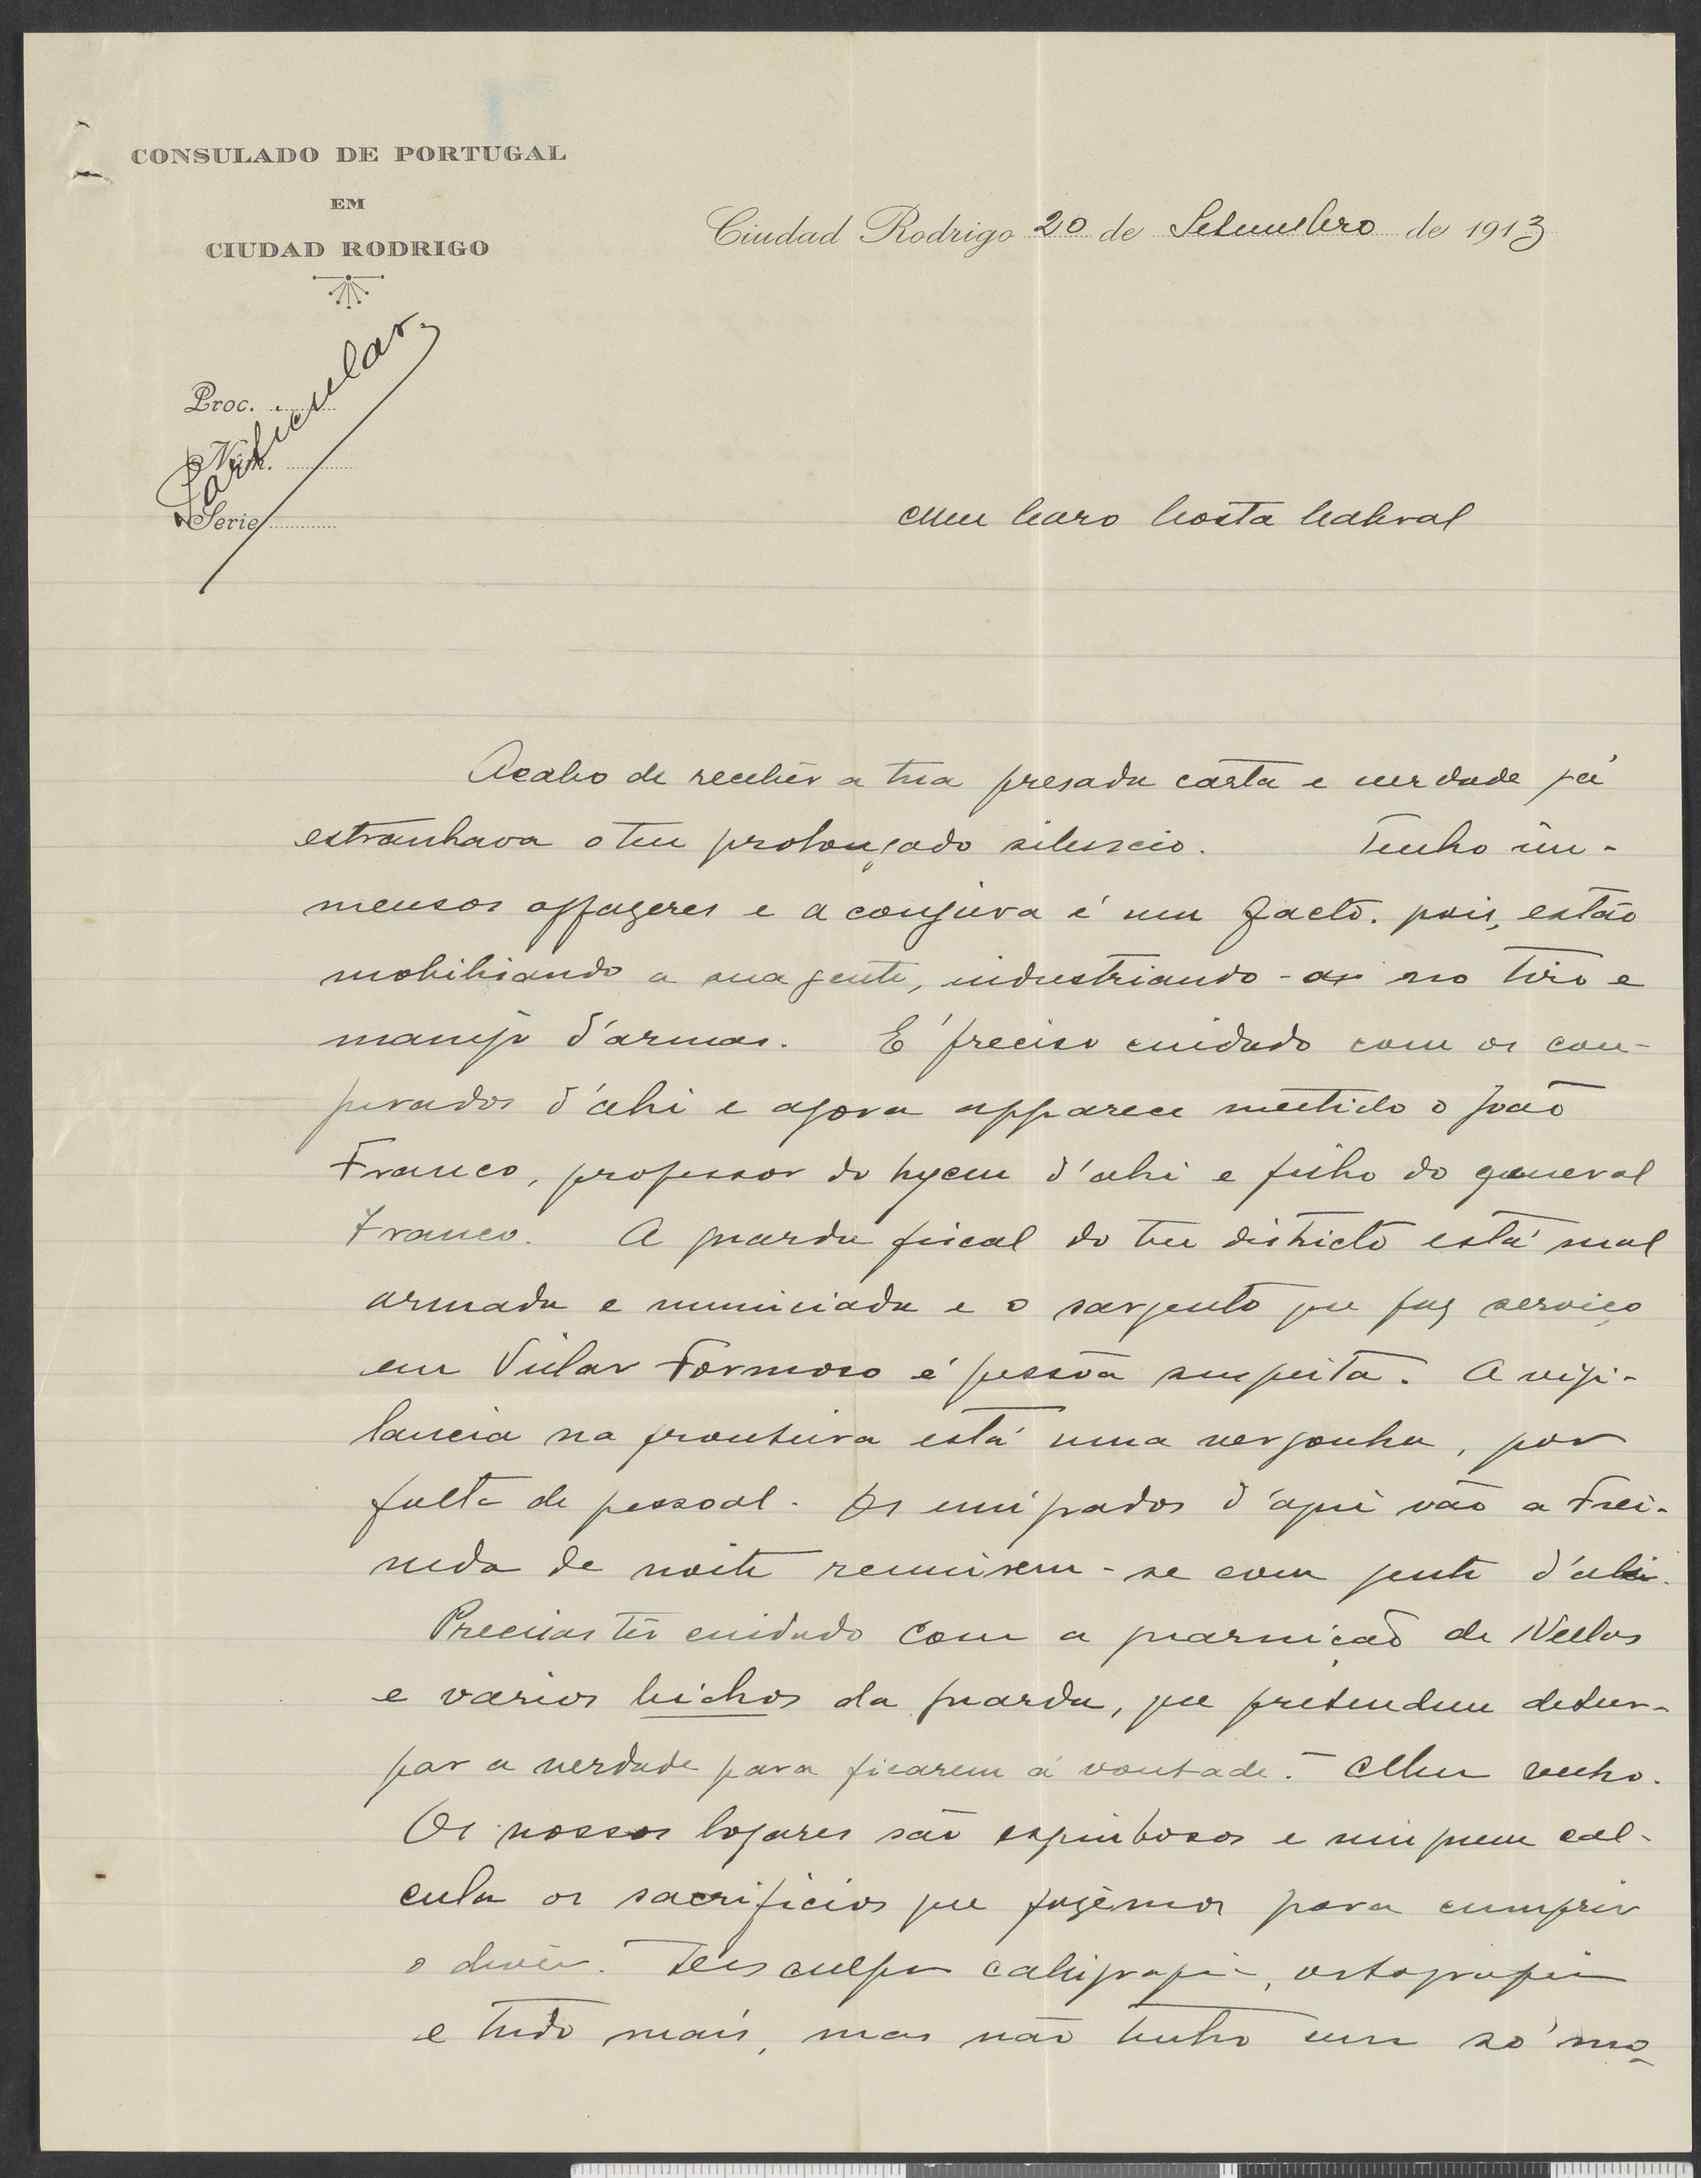 CONSULADO DE PORTUGAL
EM
CIUDAD RODRIGO
Ciudad Rodrigo 20 de Setembro de 1913
Proc.
Núm.
Serie
Particular
Meu Caro Costa Cabral
Acabo de recebêr a tua presada carta e verdade já
estranhava o teu prolongado silencio. Tenho im-
mensos affazeres e a conjura é um facto. pois, estão
mobilisando a sua gente, industriando-os no tiro e
manejo d'armas. E' preciso cuidado com os con-
jurados d'ahi e agora apparece mettido o João
Franco, professor do lyceu d'ahi e filho do general
Franco. A guarda fiscal do teu districto está mal
armada e municiada e o sargento que faz serviço
em Villar Formoso é pessôa suspeita. A vigi-
lancia na fronteira está uma vergonha, por
falta de pessoal. Os emigrados d'aqui vão a Frei-
neda de noite reunirem-se com gente d'ahi.
Precisas têr cuidado com a guarnição de
e varios bichos da guarda, que pretendem detur-
par a verdade para ficarem á vontade. - Meu velho.
Os nossos logares são espinhosos e ninguem cal-
cula os sacrificios que fazêmos para cumprir
o devêr. Desculpa caligrafia, ortografia
e tudo mais, mas não tenho um só mo-